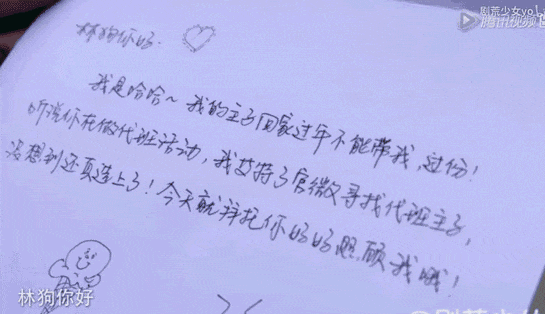 剧荒少女yo
腾讯视频
林狗你好.
我是哈哈~ 我的主子回家过年不能带我,过份!
听说你在做代班活动,我艾特了官微寻找代班主子,
没想到还真连上了!今天就拜托你好好照顾我哦!
林狗你好